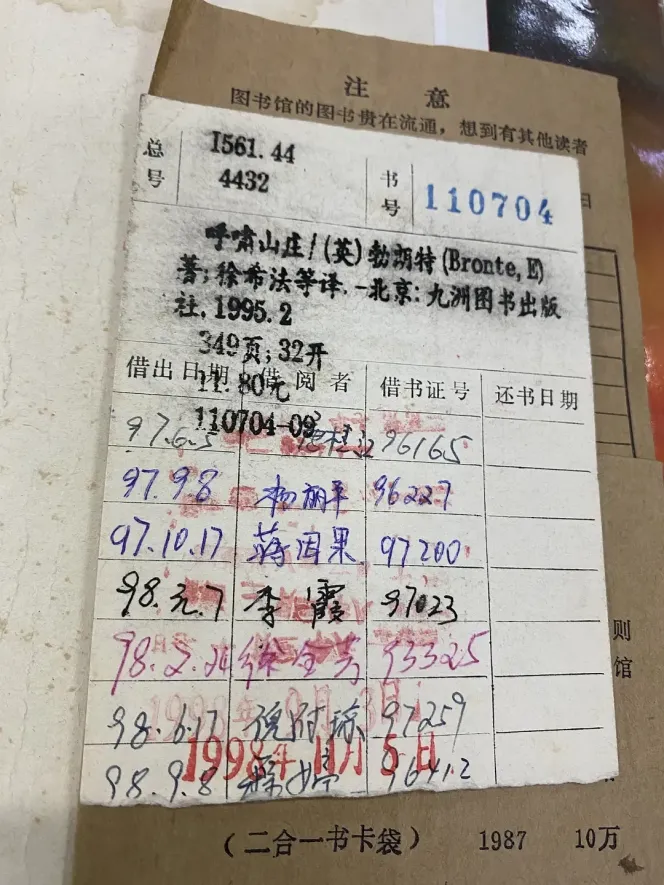 注 意
图书馆的图书贵在流通，想到有其他读者
总号 I561.44
4432
书号 110704
呼啸山庄/(英)勃朗特(Bronte,E)
著;徐希法等译.-北京:九洲图书出版
社,1995.2
349页;32开
11.80元
110704-09
借出日期 借阅者 借书证号 还书日期
97.6.5 96165
97.9.8 杨丽平 96227
97.10.17 蒋因果 97200
98.元.7 李霞 97023
98.2.24 徐全芳 93325
98.6.17 97259
98.9.8 96412
1998年11月5日
则
馆
(二合一书卡袋) 1987 10万